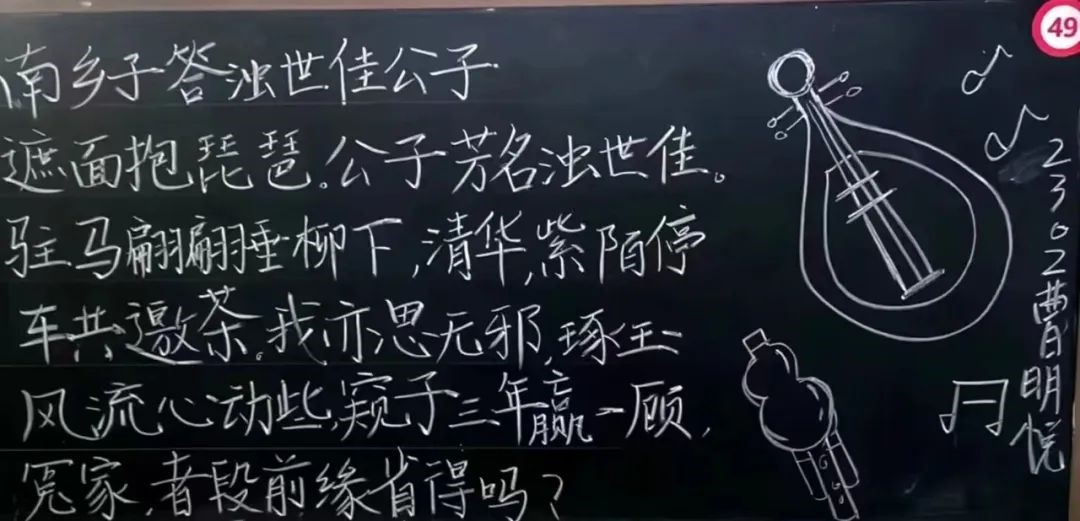 南乡子·答浊世佳公子
遮面抱琵琶。公子芳名浊世佳。
驻马翩翩垂柳下,清华,紫陌停
车共邀茶。我亦思无邪,琢玉
风流心动些,窥子三年赢一顾,
冤家,者段前缘省得吗?
2302曹明悦
49